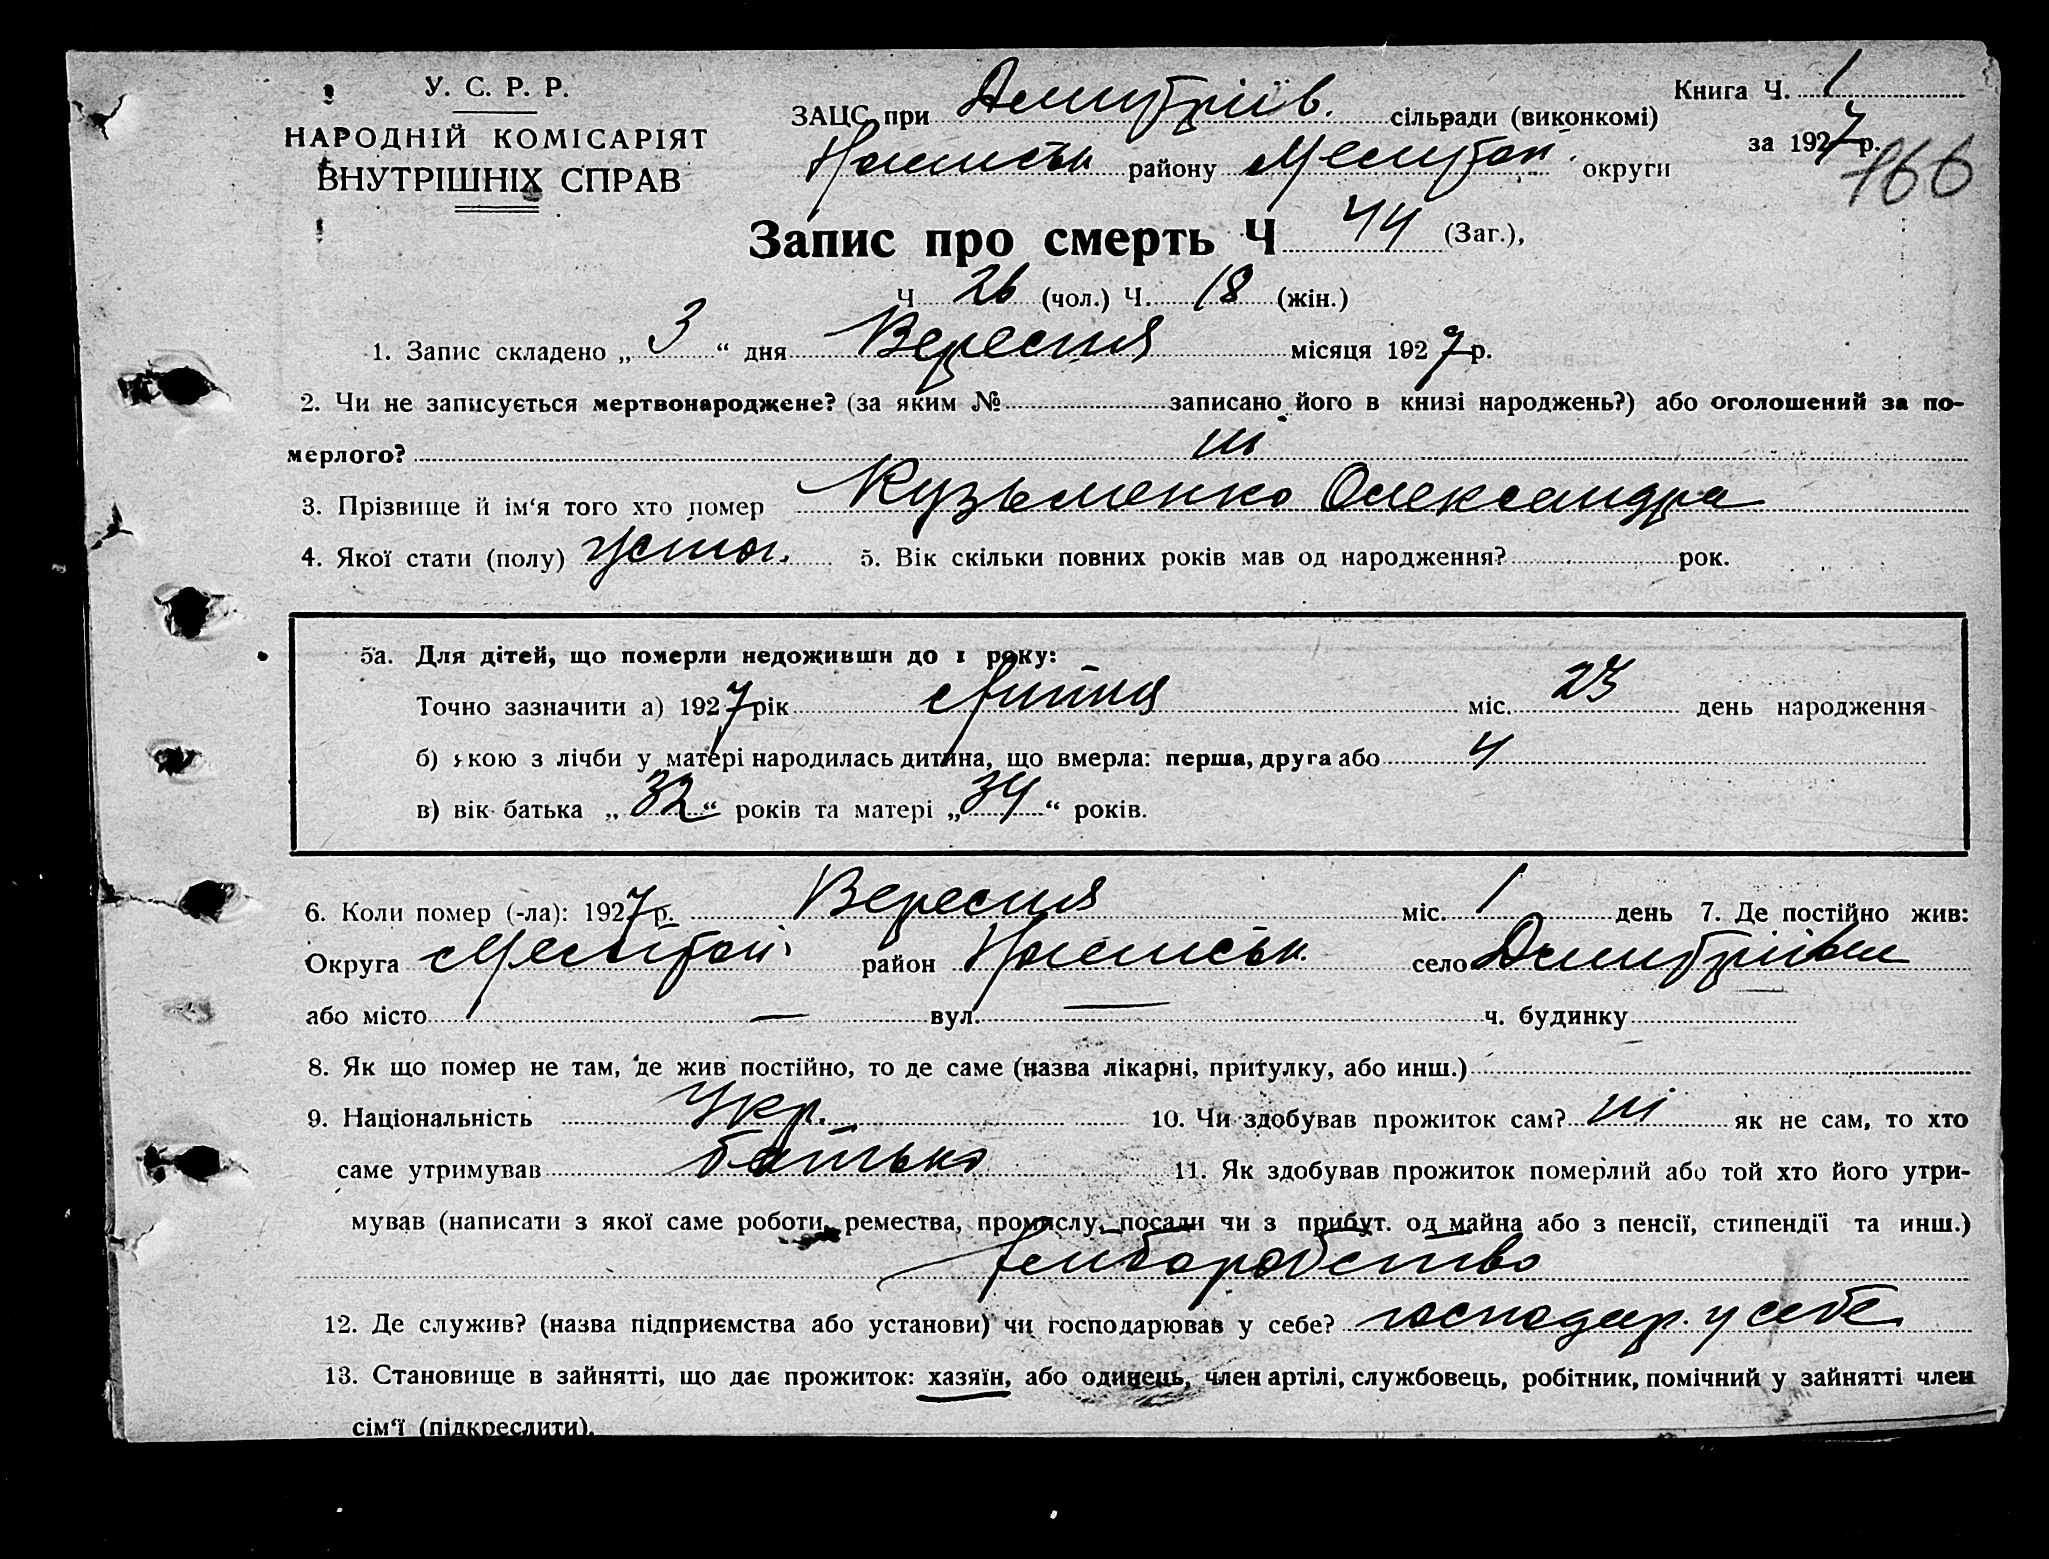 У. С. Р. Р.
НАРОДНІЙ КОМІСАРІЯТ
ВНУТРІШНІХ СПРАВ
Книга Ч. 1
за 1927 р.
166
ЗАЦС при Дмитріїв. сільради (виконкомі)
району Мелитоп. округи
Запис про смерть Ч 44 (Заг.),
Ч 26 (чол.) Ч. 18 (жін.)
1. Запис складено „ 3 “ дня Вересня місяця 1927 р.
2. Чи не записується мертвонароджене? (за яким № записано його в книзі народжень?) або оголошений за по-
мерлого? ні
3. Прізвище й ім‘я того хто помер Кузьменко Олександра
4. Якої стати (полу) 5. Вік скільки повних років мав од народження? рок.
5а. Для дітей, що померли недоживши до 1 року:
Точно зазначити а) 1927 рік Липня міс. 23 день народження
б) якою з лічби у матері народилась дитина, що вмерла: перша, друга або 4
в) вік батька „ 32 “ років та матері „ 34 “ років.
6. Коли помер (-ла): 1927 р. Вересня міс. 1 день 7. Де постійно жив:
Округа Мелітоп. район село Дмитріївка
або місто — вул. — ч. будинку
8. Як що помер не там, де жив постійно, то де саме (назва лікарні, притулку, або инш.)
9. Національність Укр. 10. Чи здобував прожиток сам? ні як не сам, то хто
саме утримував батько 11. Як здобував прожиток померлий або той хто його утри-
мував (написати з якої саме роботи, ремества, промислу, посади чи з прибут. од майна або з пенсії, стипендії та инш.)
хліборобство
12. Де служив? (назва підприємства або установи) чи господарював у себе? господар. у себе
13. Становище в зайнятті, що дає прожиток: хазяїн, або одинець, член артілі, службовець, робітник, помічний у зайнятті член
сім‘ї (підкреслити).